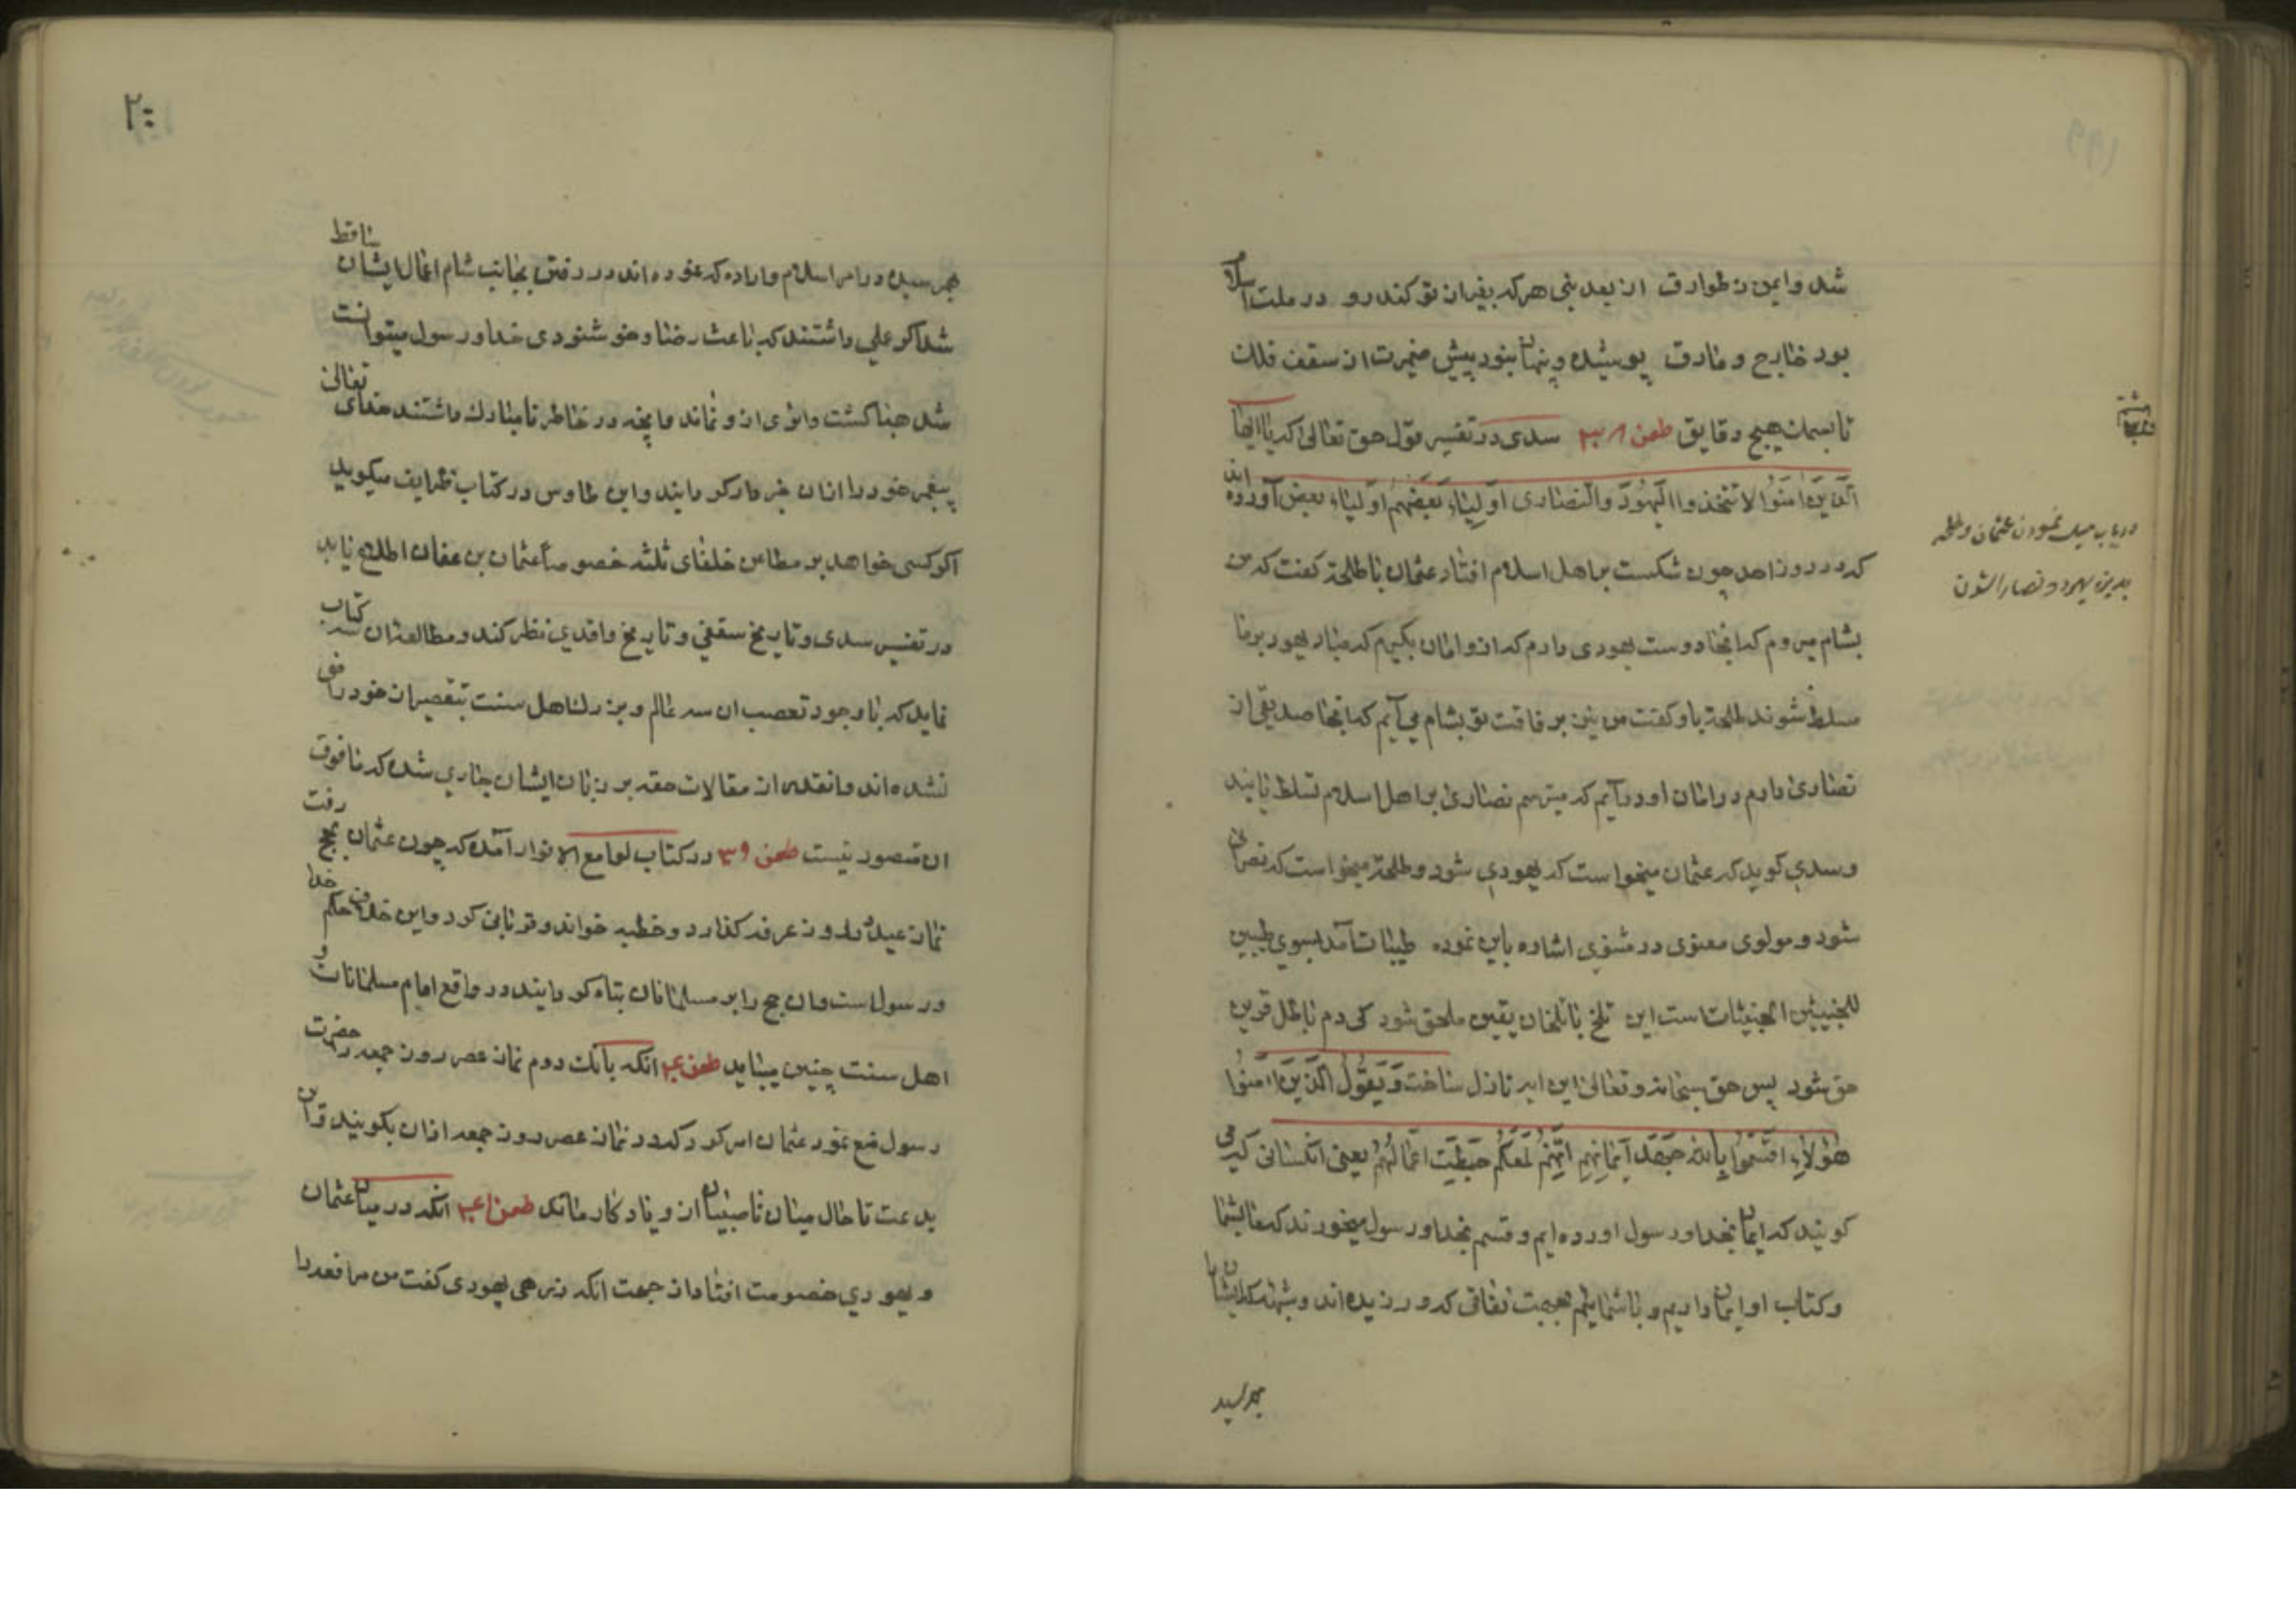 شد و ایمن ز طوارق از بعد بنی هر که بغیر از تو کند رو در ملت اسلام
بود خارج و مارق پوشیده و پنهان بنود پیش ضمیرت از سقف فلک
تا بسمک هیچ دقایق طعن ۳۸ سدی در تفسیر قول حق تعالی که یا ایها
الَّذینَ امَنُوا لا تتخذوا الیَهُودَ والنصاری اَولِیاءَ بَعضُهُم اَولیاء بعض آورده اند
که در روز احد چون شکست بر اهل اسلام افتاد عثمان با طلحة کفت که من
بشام میروم که انجا دوست یهودی دارم که از و امان بکیرم که مباد یهود بر ما
مسلط شوند طلحة باو کفت من نیز برفاقت تو بشام می آیم که انجا صدیقی از
نصاری دارم در امان او در آیم که میترسم نصاری بر اهل اسلام تسلط نایند
و سدی کوید که عثمان میخواست که یهودی شود و طلحة میخواست که نصرانی
شود و مولوی معنوی در مثنوی اشاره باین نموده طیبات آمد بسوی طیبین
للخبیثین الخبیثات است این تلخ با تلخان یقین ملحق شود کی دم باطل قرین
حق شود پس حق سبحانه و تعالی این ایه نازل ساخت وَیَقُولُ الَّذینَ امَنُوا
هؤُلاءِ اقسَمُوا بِاللهِ جَهدَ اَیمانِهِم اِنَّهُم لَمَعَکُم حَبِطَت اَعمالُهُم یعنی انکسانی که می
کویند که ایمان بخدا و رسول اورده ایم و قسم بخدا و رسول میخورند که ما با شما
و کتاب او ایمان داریم و با شمائیم بجهت نفاقی که ورزیده اند و
بهرسید
در باب میل نمودن عثمان و طلحه
بدین یهود و نصارا شدن
۲۰۰
بهرسیده در امر اسلام و اراده که نموده اند در رفتن بجانب شام اعمال ایشان ساقط
شد اکر عملی داشتند که باعث رضا و خوشنودی خدا و رسول میتوانست
شد هبا کشت و اثری از و نماند و انچه در خاطر نامبارک داشتند خدای تعالی
پیغمبر خود را از ان خبردار کردانید و ابن طاوس در کتاب ظرایف میکوید
اکر کسی خواهد بر مطاعن خلفای ثلثه خصوصاً عثمان بن عفان اطلاع یابد
در تفسیر سدی و تاریخ سقفی و تاریخ واقدی نظر کند و مطالعه ان سه کتاب
نماید که با وجود تعصب ان سه عالم و بزرک اهل سنت بتقصیر از خود راضی
نشده اند و انقدر از مقالات حقه بر زبان ایشان جاری شده که ما فوق
ان متصور نیست طعن ۳۹ در کتاب لوامع الانوار آمده که چون عثمان بحج رفت
نماز عید را در روز عرفه کذارد و خطبه خواند و قربانی کرد و این خلاف حکم خدا
و رسول است و ان حج را بر مسلمانان تباه کردانیند و در واقع امام مسلمانان و
اهل سنت چنین میباید طعن ۴۰ انکه بانک دوم نماز عصر روز جمعه را حضرت
رسول منع نمود عثمان امر کرد که در نماز عصر روز جمعه اذان بکویند و ان
بدعت تا حال میان ناصبیان از و یادکار ماند طعن ۴۱ انکه در میان عثمان
و یهودی خصومت افتاد از جهت انکه زرهی یهودی کفت من مرافعه را